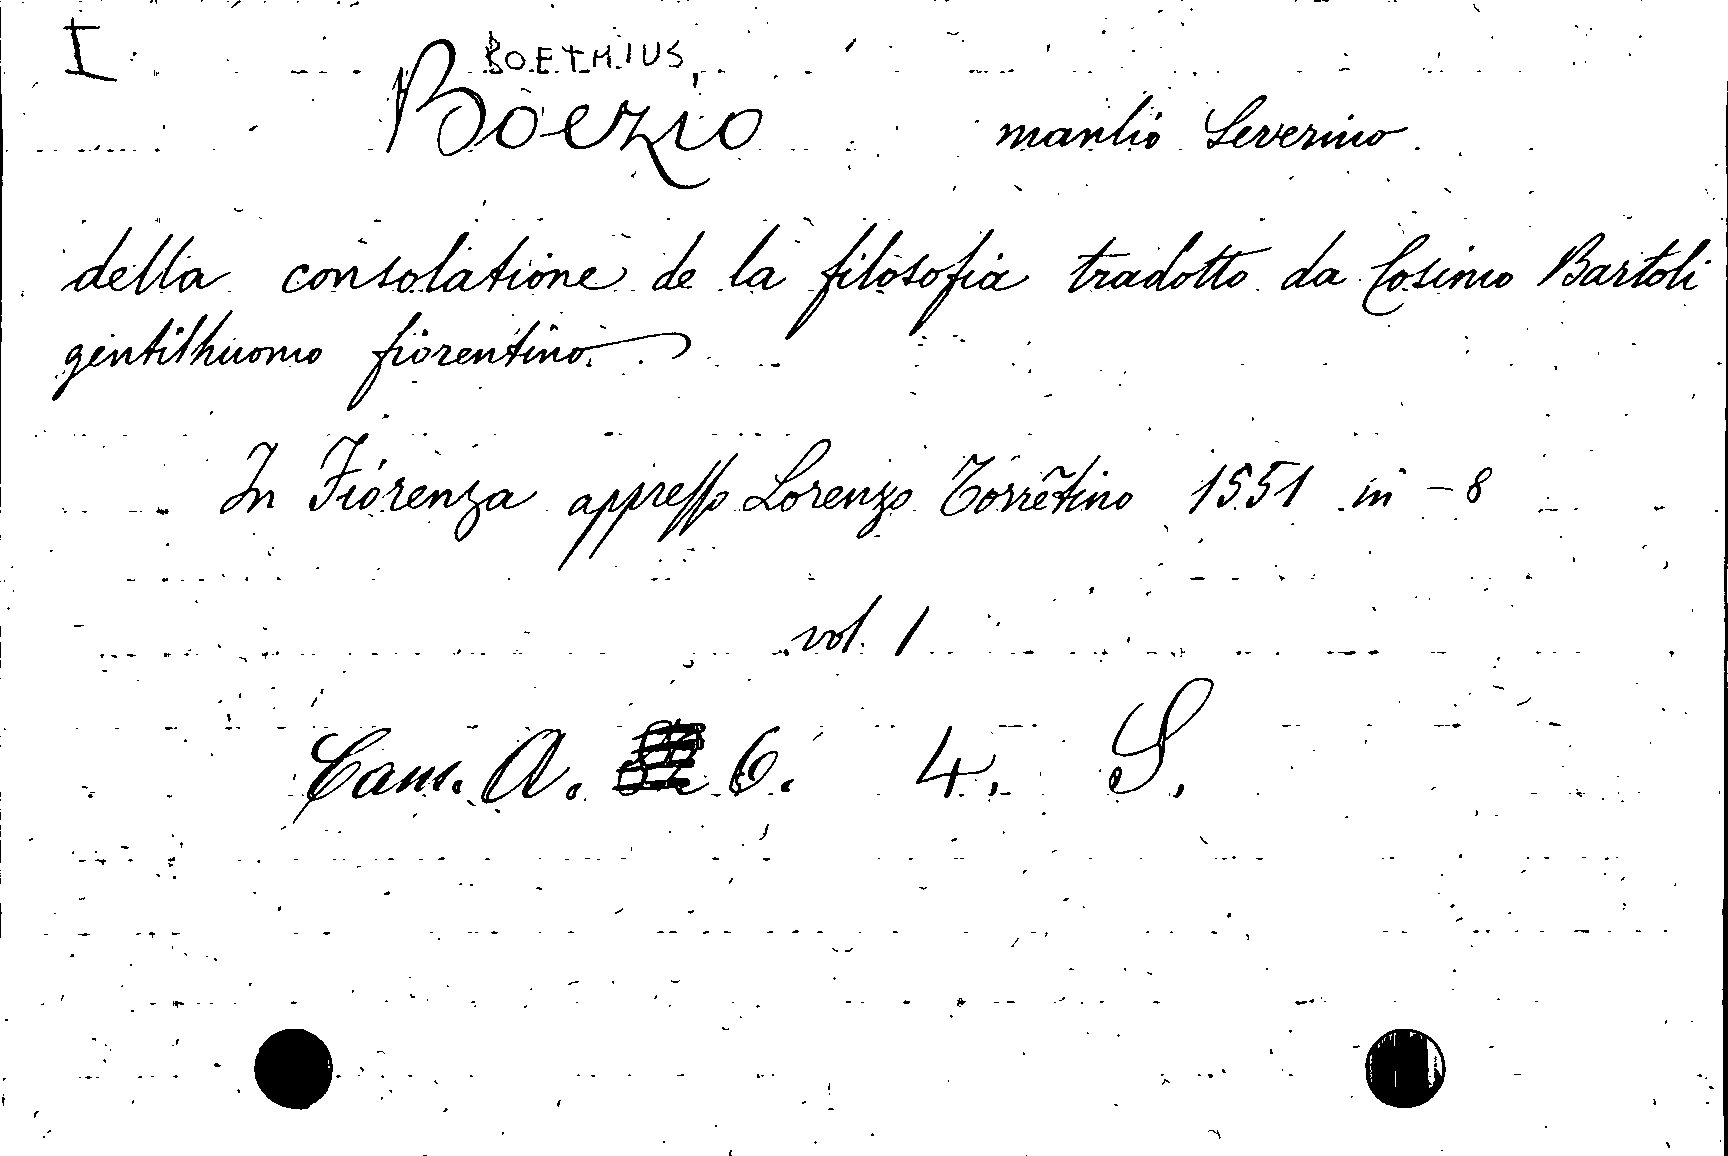 I
BOETHIUS,
Boezio manlio Severino
della consolatione de la filosofia tradotto da Cosimo Bartoli
gentilhuomo fiorentino.
In Fiorenza appresso Lorenzo Torrẽtino 1551 in - 8
vol. 1
Cam. A. 6. 4. S.